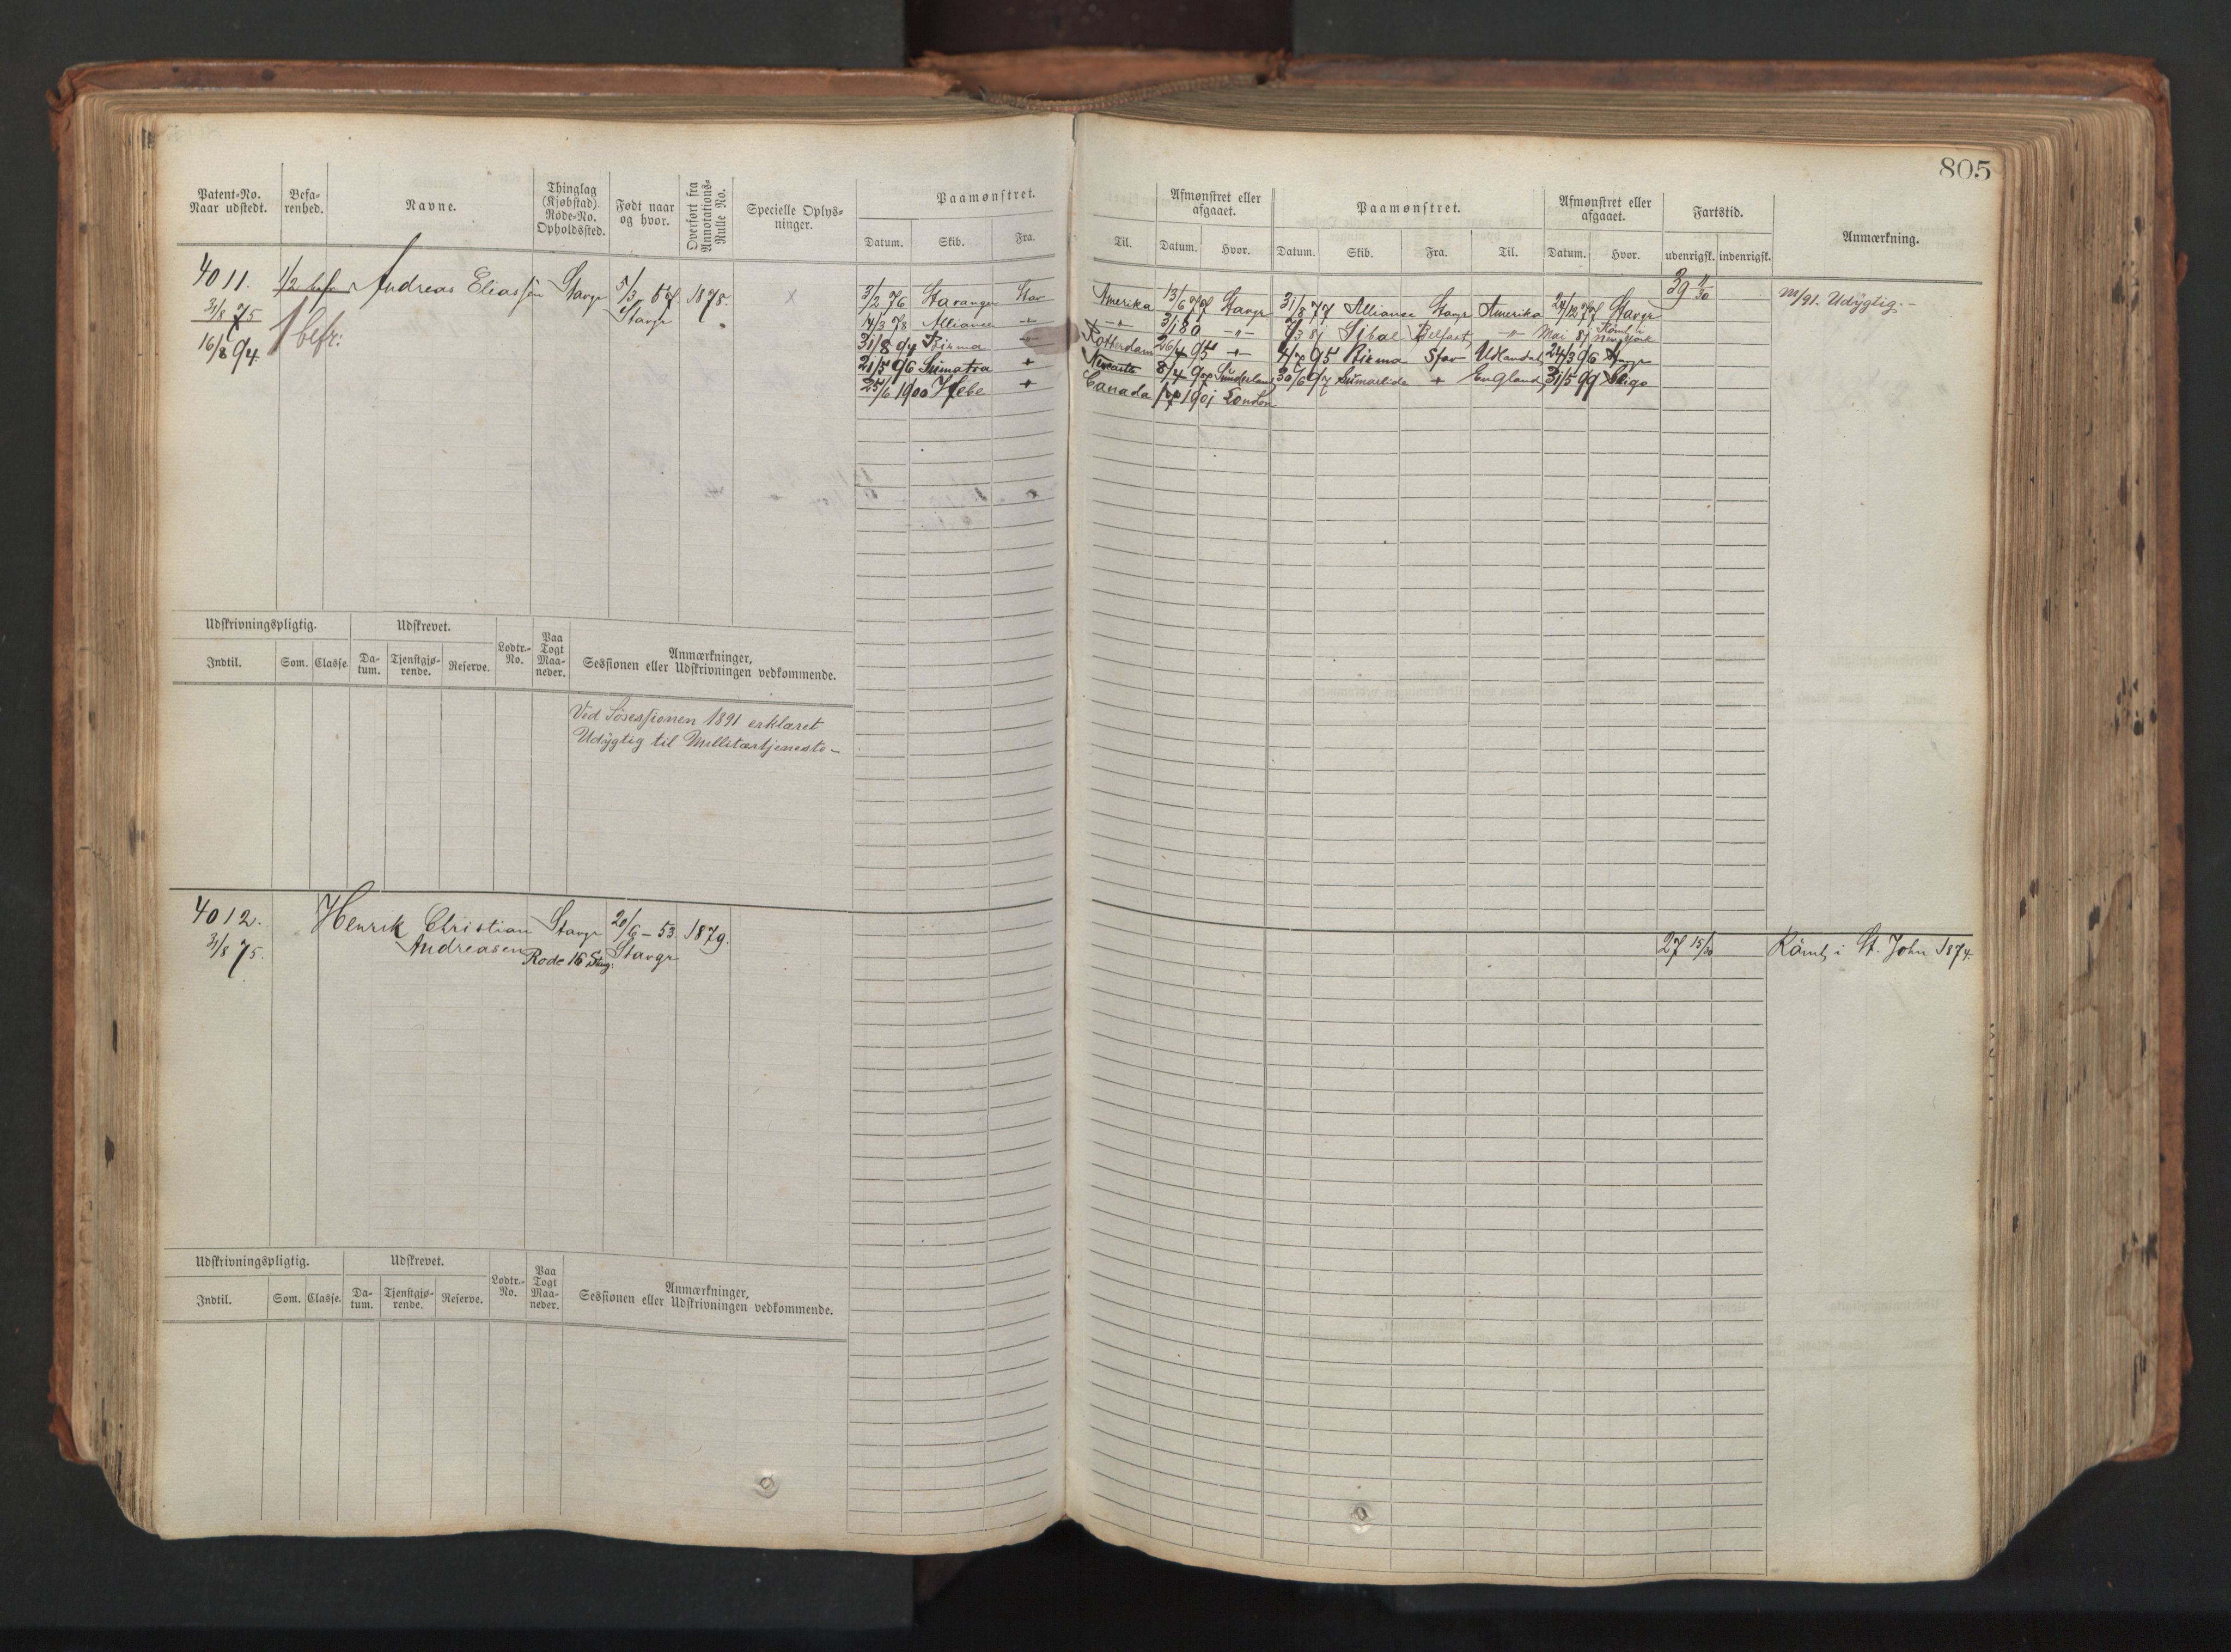 805
Patent-No. Naar udstedt.
Befa-renhed.
Navne.
Thinglag (Kjøbstad). Rode-No. Opholdssted.
Født naar og hvor.
Overført fra Annotations-Rulle No.
Specielle Oplys-ninger.
Paamønstret.
Datum. Skib. Fra.
Til.
Afmønstret eller afgaaet.
Datum. Hvor.
Paamønstret.
Datum. Skib. Fra. Til.
Afmønstret eller afgaaet.
Datum. Hvor.
Fartstid.
udenrigsk. indenrigsk.
Anmærkning.
4011. 1/2 Andreas Eliassen Stavgr 5/3 57 1878. X
31/8 75 Stavgr
16/8 94. 1 befr:
3/2 76 Stavanger Stav Amerika 13/6 77 Stavgr 31/8 77 Alliance Stavgr Amerika 24/12 77 Stavgr 39 11/30 m/91. Udygtig.-
4/3 78 Alliance -"- -"- 80 -"- Belfast, -"- Mai New York
31/8 94 -"- Rotterdam 26/4 95 -"- 95 Stav Udlandet 24/3 96
21/5 96 Sumatra + 8/4 97 Sunderland 30/6 97 + England 31/5 99 Sligo
25/6 1900 Hebe + Canada 1901 London
Udskrivningspligtig. Udskrevet. Lodtr.-No. Paa Togt Maa-neder. Anmærkninger, Sessionen eller Udskrivningen vedkommende.
Indtil. Som. Classe. Da-tum. Tjenstgjø-rende. Reserve.
Ved Søsessionen 1891 erklæret
Udygtig til Millitærtjeneste –
4012. Henrik Christian Stavgr 20/6 – 53. 1879. 27 15/30 Römt, i St. John 1874.
31/8 75. Andreasen Rode 16 Stavgr
Udskrivningspligtig. Udskrevet. Lodtr.-No. Paa Togt Maa-neder. Anmærkninger, Sessionen eller Udskrivningen vedkommende.
Indtil. Som. Classe. Da-tum. Tjenstgjø-rende. Reserve.